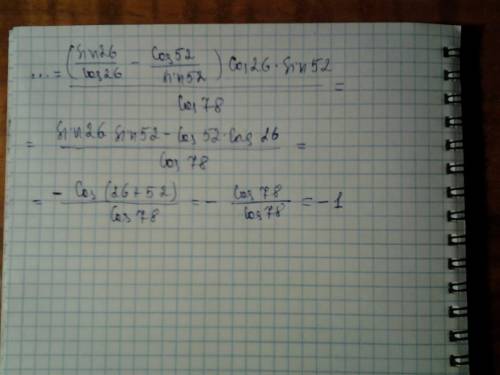 ... = (sin26/cos26 - cos52/sin52) cos26 · sin52 / cos78 =
= sin26 · sin52 - cos52 · cos26 / cos78 =
= - cos(26+52) / cos78 = - cos78 / cos78 = -1